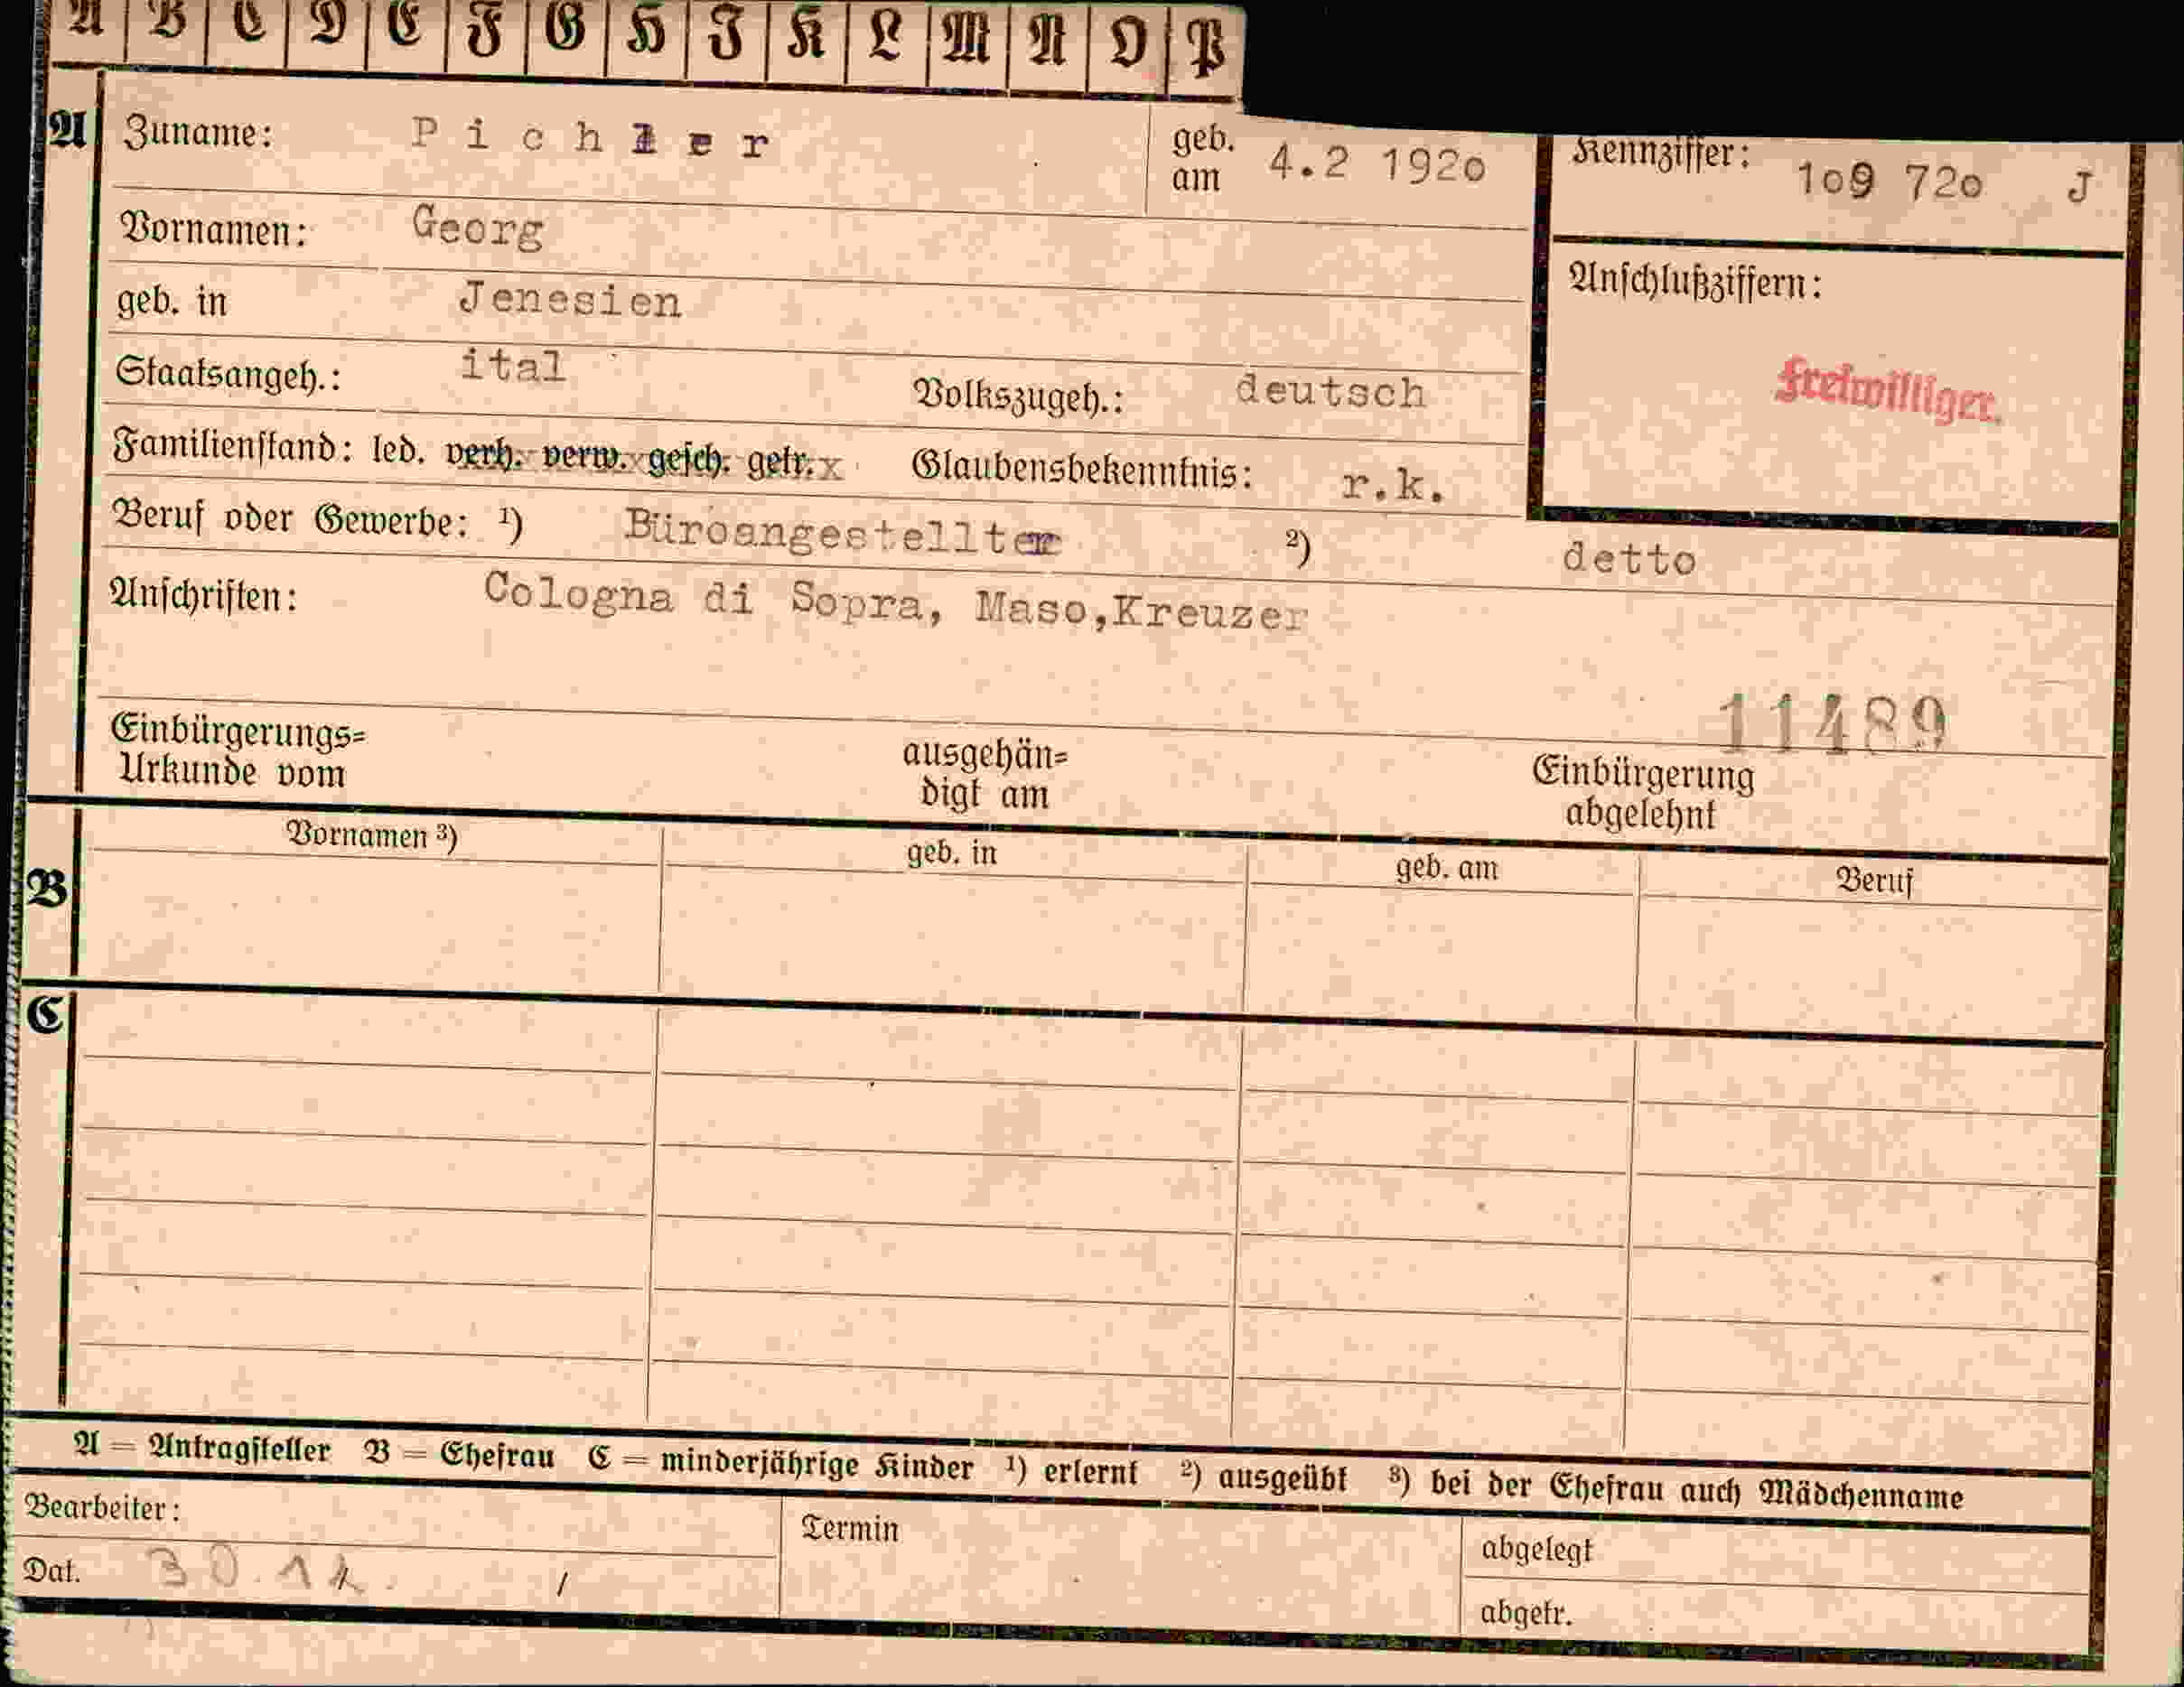 A B C D E F G H I K L M N O P
A Zuname: Pichler geb. am 4.2 1920 Kennziffer: 109 720 J
Vornamen: Georg
Anschlußziffern:
geb. in Jenesien
Freiwilliger.
Staatsangeh.: ital Volkszugeh.: deutsch
Familienstand: led. verh. verw. gesch. getr. x Glaubensbekenntnis: r.k.
Beruf oder Gewerbe: ¹) Büroangestellter ²) detto
Anschriften: Cologna di Sopra, Maso,Kreuzer
11489
Einbürgerungs=
Urkunde vom
ausgehän=
digt am
Einbürgerung
abgelehnt
B Vornamen ³) geb. in geb. am Beruf
C
A = Antragsteller B = Ehefrau C = minderjährige Kinder ¹) erlernt ²) ausgeübt ³) bei der Ehefrau auch Mädchenname
Bearbeiter:
Termin
abgelegt
Dat. 30.
abgetr.